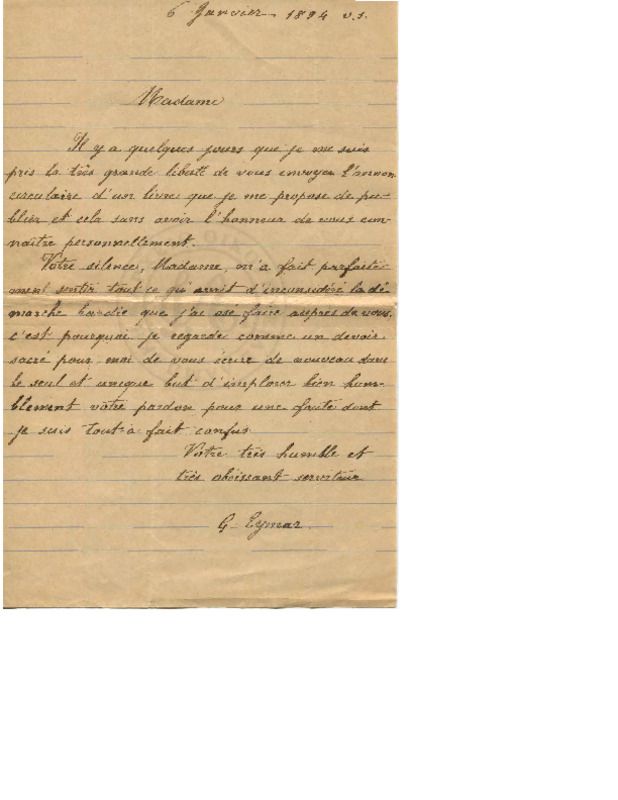 6 Janvier 1894 v.s.
Madame
Il y a quelques jours que je me suis
pris la très grande liberté de vous envoyer l'annon
circulaire d'un livre que je me propose de pu-
blier et cela sans avoir l'honneur de vous con-
naître personnellement.
Votre silence, Madame, m'a fait parfaite
ment sentir tout ce qu'avait d'inconsidéré la dé
marche hardie que j'ai osé faire auprès de vous,
c'est pourquoi je regarde comme un devoir
sacré pour moi de vous écrire de nouveau dans
le seul et unique but d'implorer bien hum-
blement votre pardon pour une faute dont
je suis tout à fait confus
Votre très humble et
très obéissant serviteur
G. Eymar.